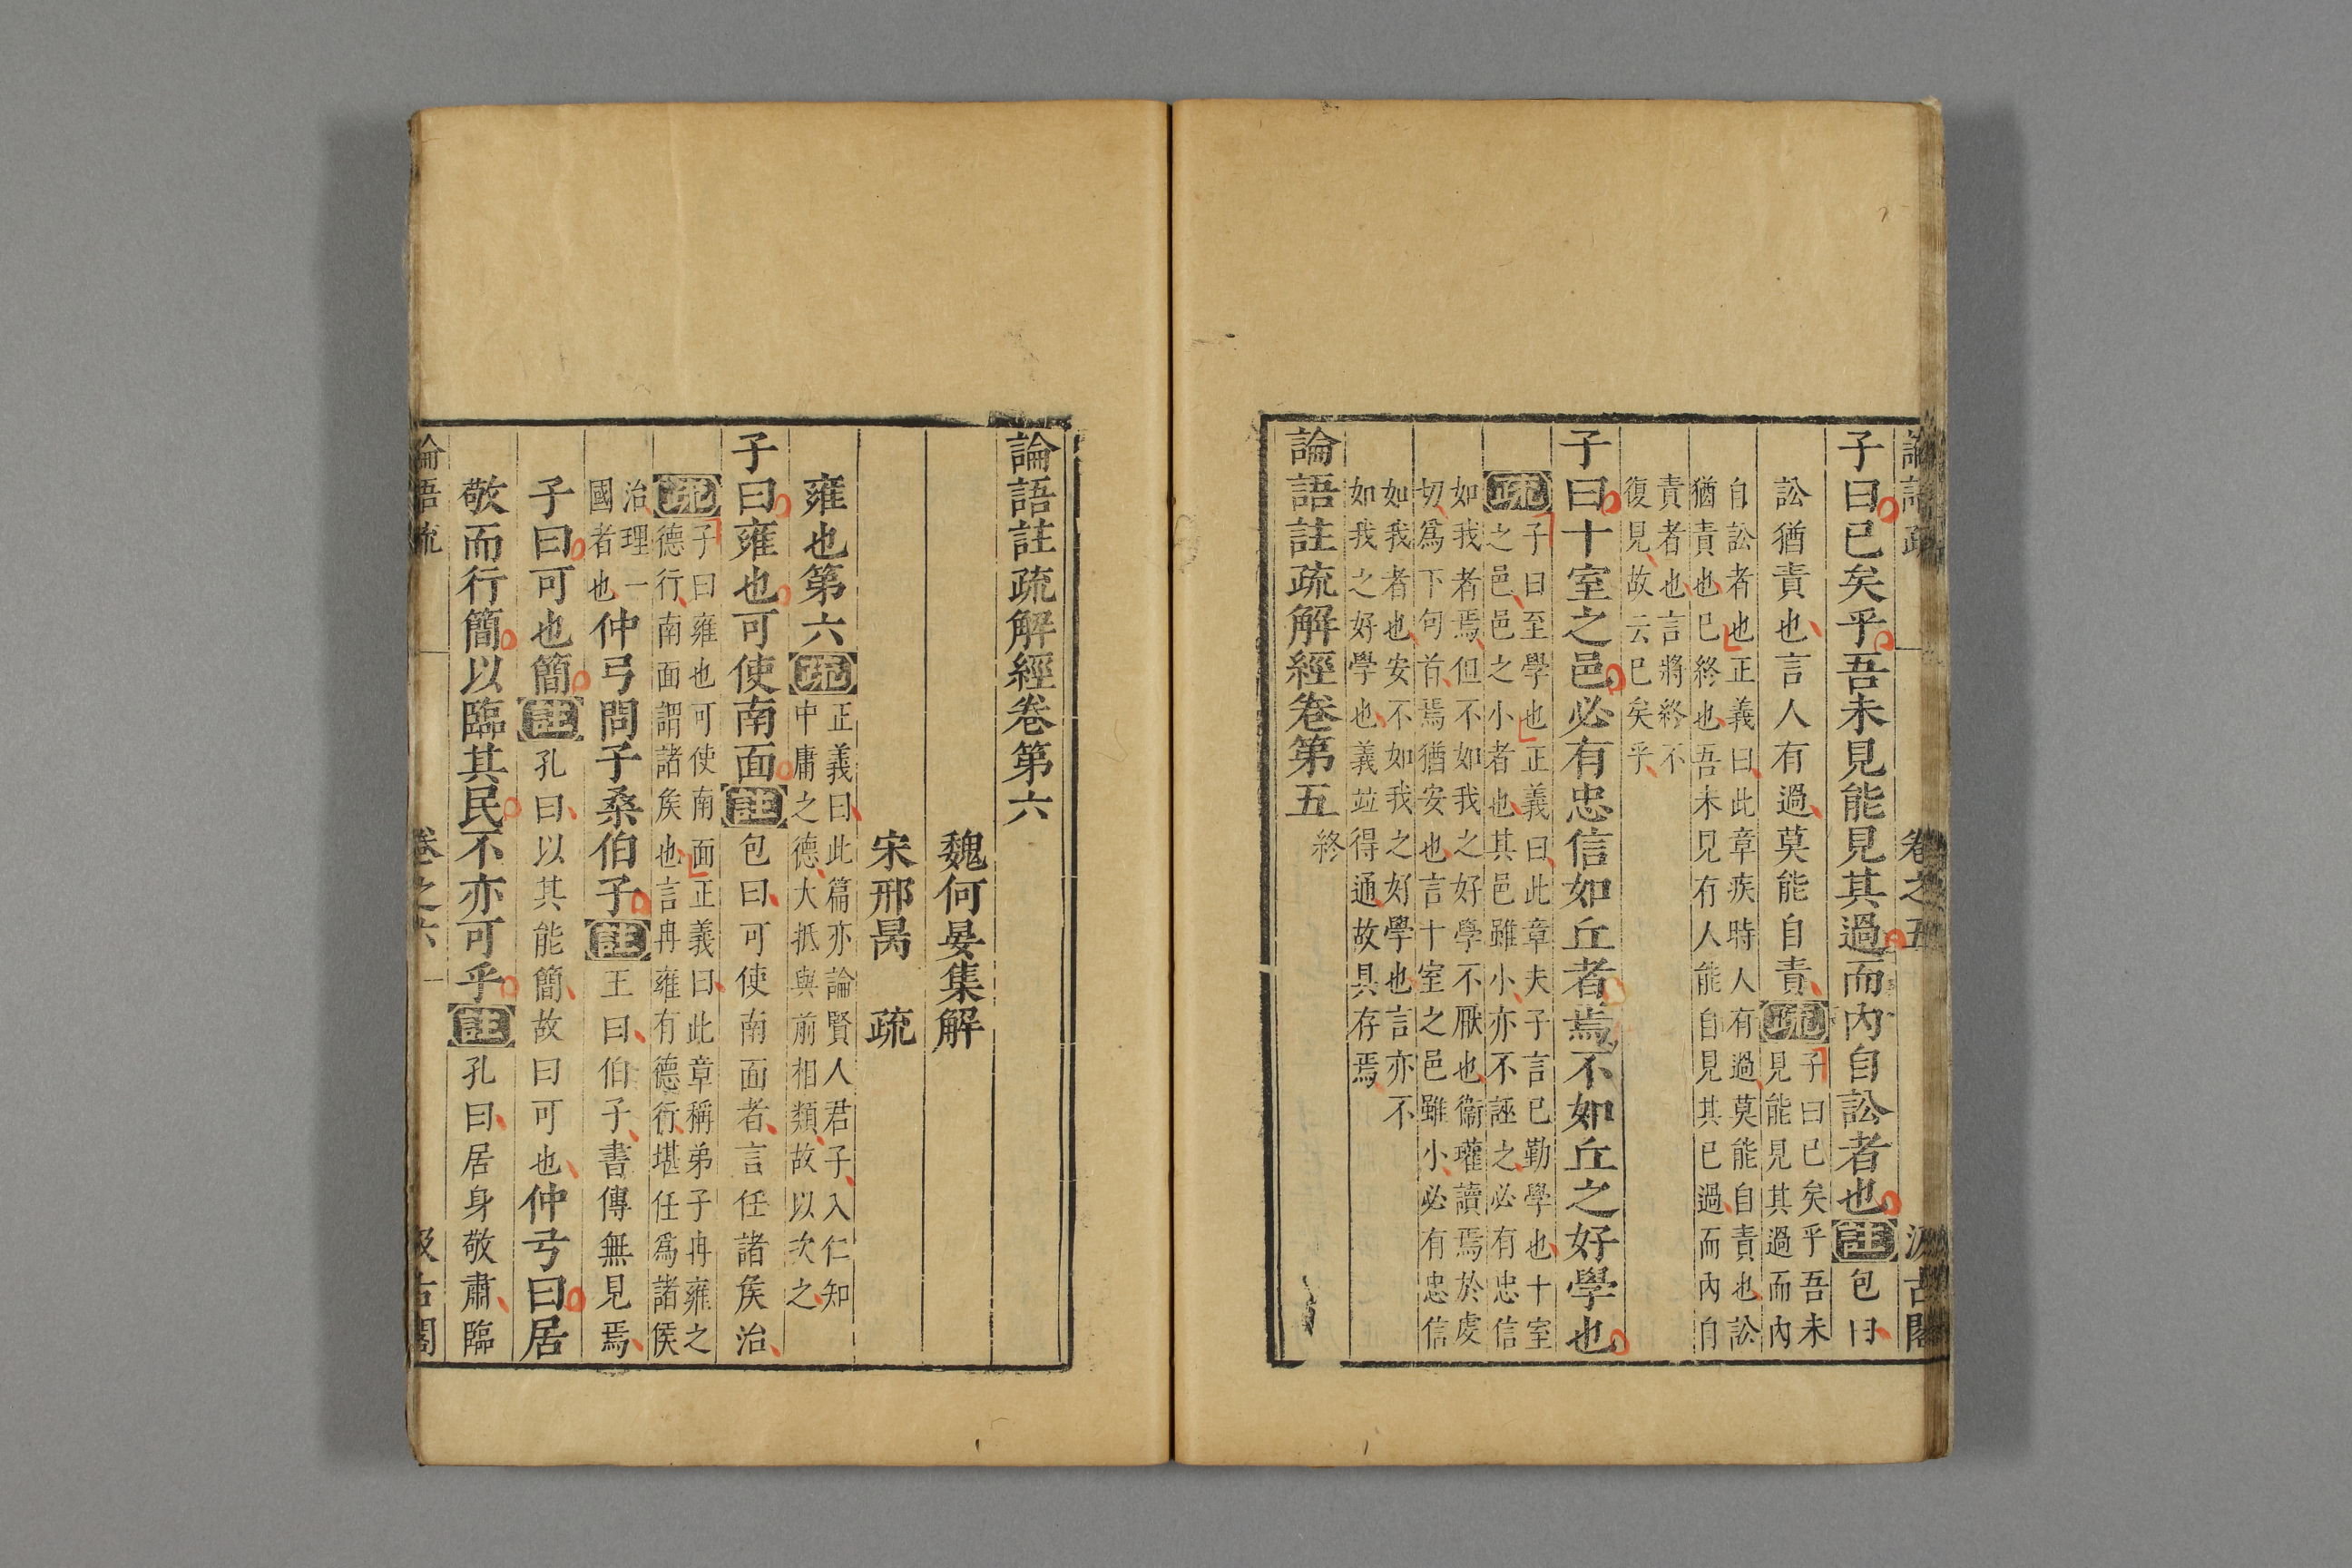 論語疏 卷之五 汲古閣
子曰已矣乎吾未見能見其過而內自訟者也註包曰
訟猶責也言人有過莫能自責疏子曰已矣乎吾未
見能見其過而內
自訟者也正義曰此章疾時人有過莫能自責也訟
猶責也已終也吾未見有人能自見其已過而內自
責者也言將終不
復見故云已矣乎
子曰十室之邑必有忠信如丘者焉不如丘之好學也
疏子曰至學也正義曰此章夫子言已勤學也十室
之邑邑之小者也其邑雖小亦不誣之必有忠信
如我者焉但不如我之好學不厭也衞瓘讀焉於虔
切爲下句首焉猶安也言十室之邑雖小必有忠信
如我者也安不如我之好學也言亦不
如我之好學也義竝得通故具存焉
論語註疏解經卷第五終
論語註疏解經卷第六
魏何晏集解
宋邢昺 疏
雍也第六疏正義曰此篇亦論賢人君子入仁知
中庸之德大抵與前相類故以次之
子曰雍也可使南面註包曰可使南面者言任諸矦治
疏子曰雍也可使南面正義曰此章稱弟子冉雍之
德行南面謂諸矦也言冉雍有德行堪任爲諸侯
治理一
國者也仲弓問子桑伯子註王曰伯子書傳無見焉
子曰可也簡註孔曰以其能簡故曰可也仲弓曰居
敬而行簡以臨其民不亦可乎註孔曰居身敬肅臨
論語疏 卷之六 一 汲古閣